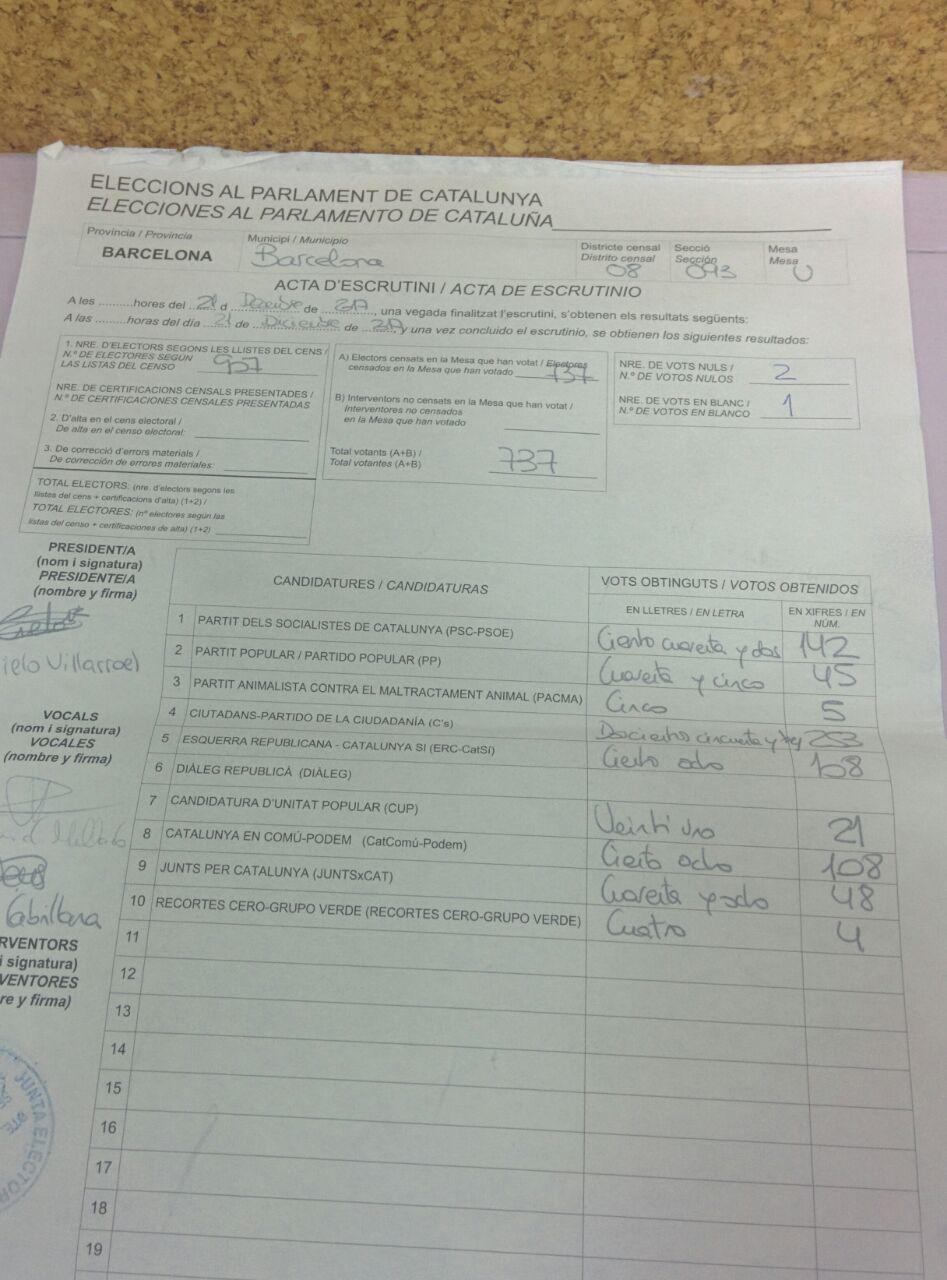 ELECCIONS AL PARLAMENT DE CATALUNYA
ELECCIONES AL PARLAMENTO DE CATALUÑA
Província / Provincia
BARCELONA
Municipi / Municipio
Barcelona
Districte censal
Distrito censal
08
Secció
Sección
093
Mesa
Mesa
U
ACTA D'ESCRUTINI / ACTA DE ESCRUTINIO
A les ..........hores del ...21 d Diciembre de ..2017..., una vegada finalitzat l'escrutini, s'obtenen els resultats següents:
A las .........horas del día ...21 de Diciembre de ...2017, y una vez concluido el escrutinio, se obtienen los siguientes resultados:
1. NRE. D'ELECTORS SEGONS LES LLISTES DEL CENS /
N.º DE ELECTORES SEGÚN
LAS LISTAS DEL CENSO 937
NRE. DE CERTIFICACIONS CENSALS PRESENTADES /
N.º DE CERTIFICACIONES CENSALES PRESENTADAS
2. D'alta en el cens electoral /
De alta en el censo electoral:
3. De correcció d'errors materials /
De corrección de errores materiales:
TOTAL ELECTORS: (nre. d'electors segons les
llistes del cens + certificacions d'alta) (1+2) /
TOTAL ELECTORES: (nº electores según las
listas del censo + certificaciones de alta) (1+2)
A) Electors censats en la Mesa que han votat / Electores
censados en la Mesa que han votado 737
B) Interventors no censats en la Mesa que han votat /
Interventores no censados
en la Mesa que han votado
Total votants (A+B) /
Total votantes (A+B) 737
NRE. DE VOTS NULS /
N.º DE VOTOS NULOS 2
NRE. DE VOTS EN BLANC /
N.º DE VOTOS EN BLANCO 1
PRESIDENT/A
(nom i signatura)
PRESIDENTE/A
(nombre y firma)
ielo Villarroel
VOCALS
(nom i signatura)
VOCALES
(nombre y firma)
Cabillana
RVENTORS
i signatura)
VENTORES
re y firma)
JUNTA ELECTOR
CANDIDATURES / CANDIDATURAS
VOTS OBTINGUTS / VOTOS OBTENIDOS
EN LLETRES / EN LETRA
EN XIFRES / EN
NÚM.
1 PARTIT DELS SOCIALISTES DE CATALUNYA (PSC-PSOE) Ciento cuarenta y dos 142
2 PARTIT POPULAR / PARTIDO POPULAR (PP) Cuarenta y cinco 45
3 PARTIT ANIMALISTA CONTRA EL MALTRACTAMENT ANIMAL (PACMA) Cinco 5
4 CIUTADANS-PARTIDO DE LA CIUDADANÍA (C's) Doscientos cincuenta y tres 253
5 ESQUERRA REPUBLICANA - CATALUNYA SÍ (ERC-CatSí) Ciento ocho 108
6 DIÀLEG REPUBLICÀ (DIÀLEG)
7 CANDIDATURA D'UNITAT POPULAR (CUP) Veintiuno 21
8 CATALUNYA EN COMÚ-PODEM (CatComú-Podem) Ciento ocho 108
9 JUNTS PER CATALUNYA (JUNTSxCAT) Cuarenta y ocho 48
10 RECORTES CERO-GRUPO VERDE (RECORTES CERO-GRUPO VERDE) Cuatro 4
11
12
13
14
15
16
17
18
19